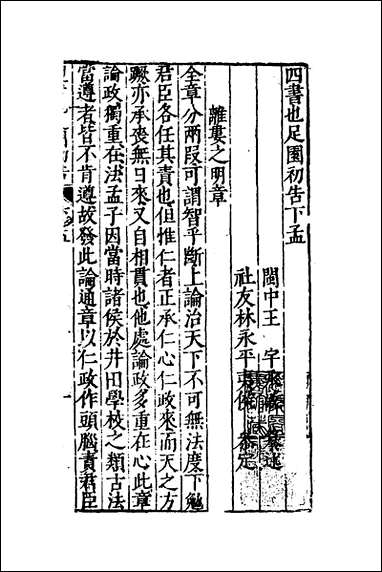 四書也足園初告下孟
閩中王 宇 述
社友林永平 參定
離婁之明章
全章分兩段可謂智乎斷上論治天下不可無法度下勉
君臣各任其責也但惟仁者正承仁心仁政來而天之方
蹶亦承喪無日來又自相貫也他處論政多重在心此章
論政獨重在法孟子因當時諸侯於井田學校之類古法
當遵者皆不肯遵故發此論通章以仁政作頭腦責君臣